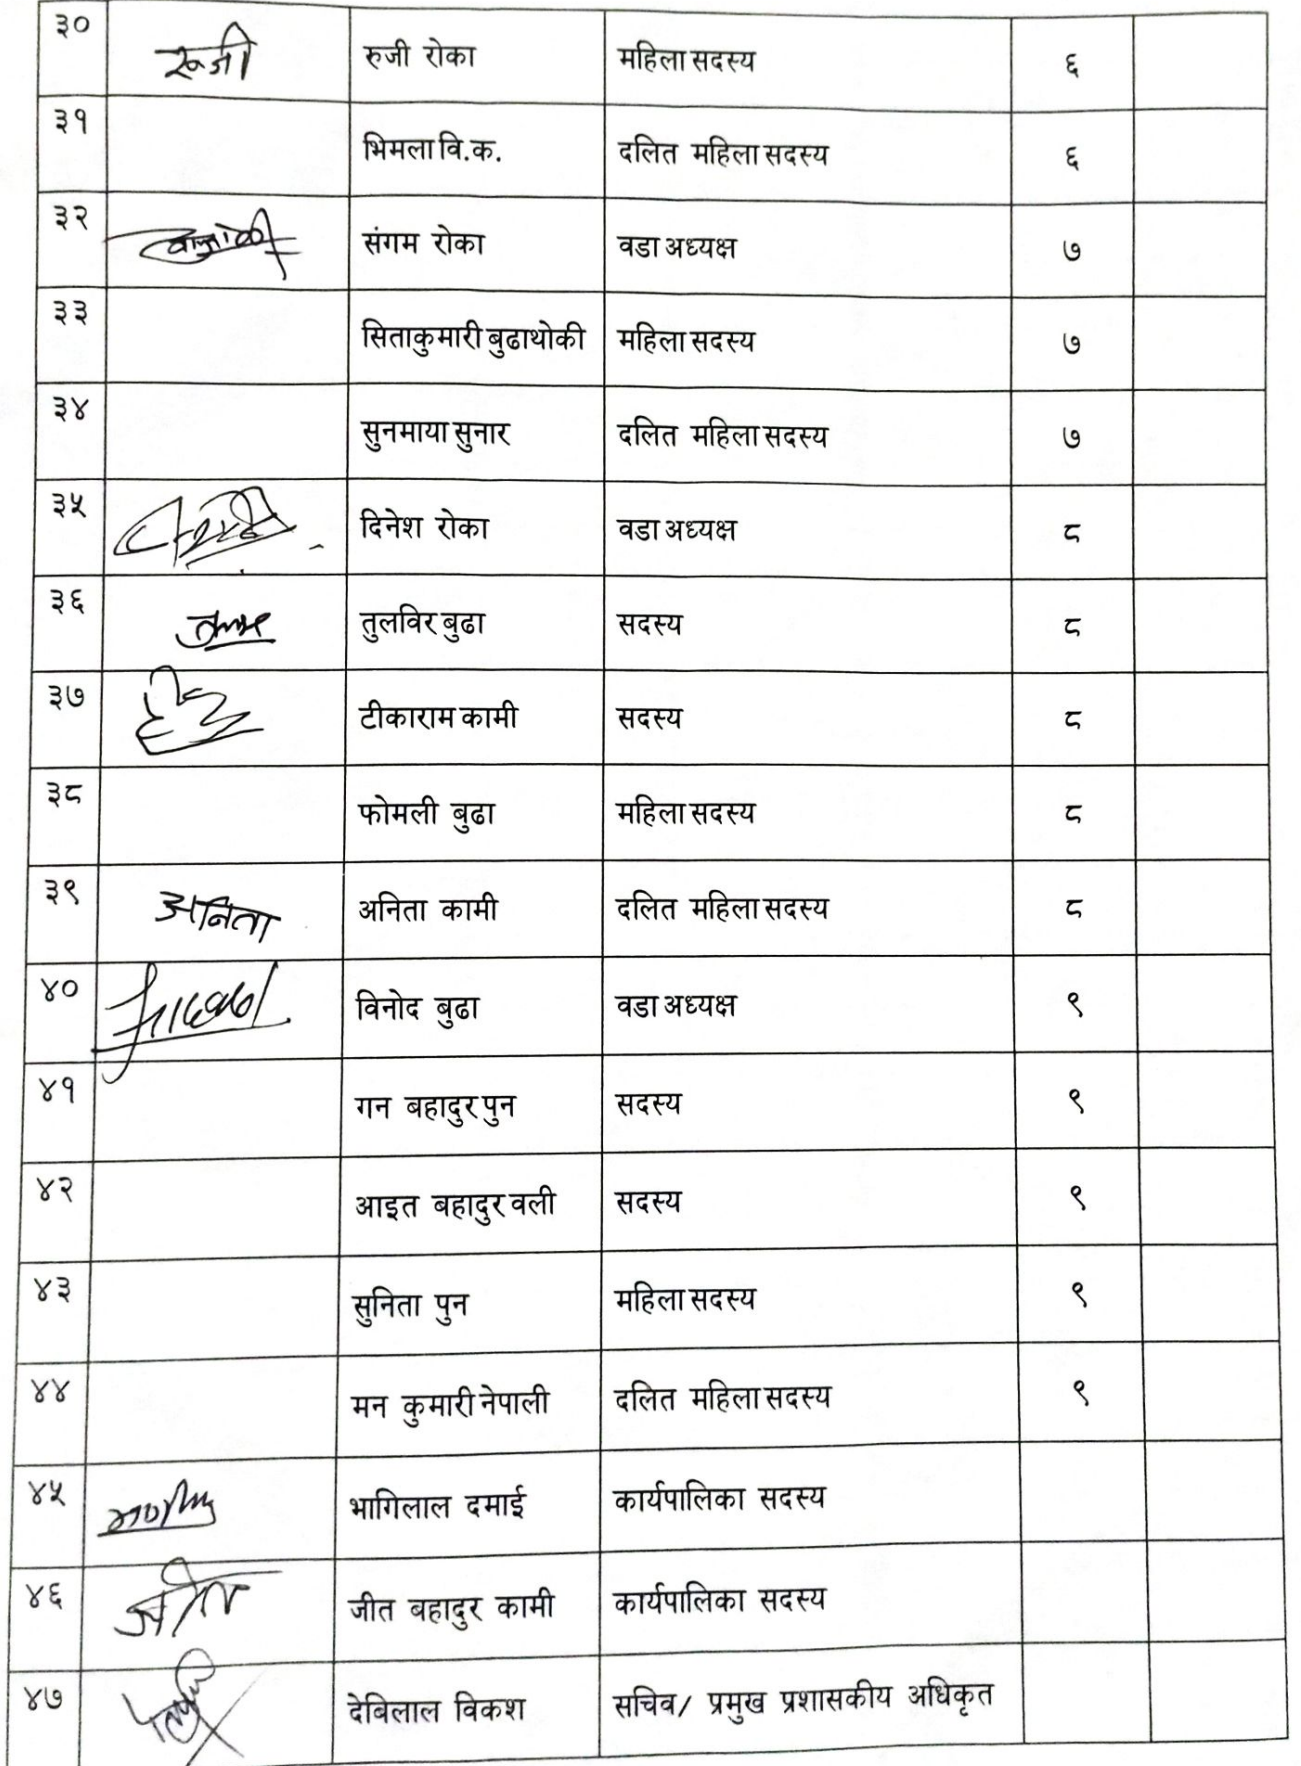 ३० रुजी रुजी रोका महिला सदस्य ६
३१ भिमला वि.क. दलित महिला सदस्य ६
३२ संगम रोका वडा अध्यक्ष ७
३३ सिताकुमारी बुढाथोकी महिला सदस्य ७
३४ सुनमाया सुनार दलित महिला सदस्य ७
३५ दिनेश रोका वडा अध्यक्ष ८
३६ तुलविर बुढा सदस्य ८
३७ टीकाराम कामी सदस्य ८
३८ फोमली बुढा महिला सदस्य ८
३९ अनिता अनिता कामी दलित महिला सदस्य ८
४० विनोद बुढा वडा अध्यक्ष ९
४१ गन बहादुर पुन सदस्य ९
४२ आइत बहादुर वली सदस्य ९
४३ सुनिता पुन महिला सदस्य ९
४४ मन कुमारी नेपाली दलित महिला सदस्य ९
४५ भागिलाल दमाई कार्यपालिका सदस्य
४६ जीत जीत बहादुर कामी कार्यपालिका सदस्य
४७ देबिलाल विकश सचिव/ प्रमुख प्रशासकीय अधिकृत